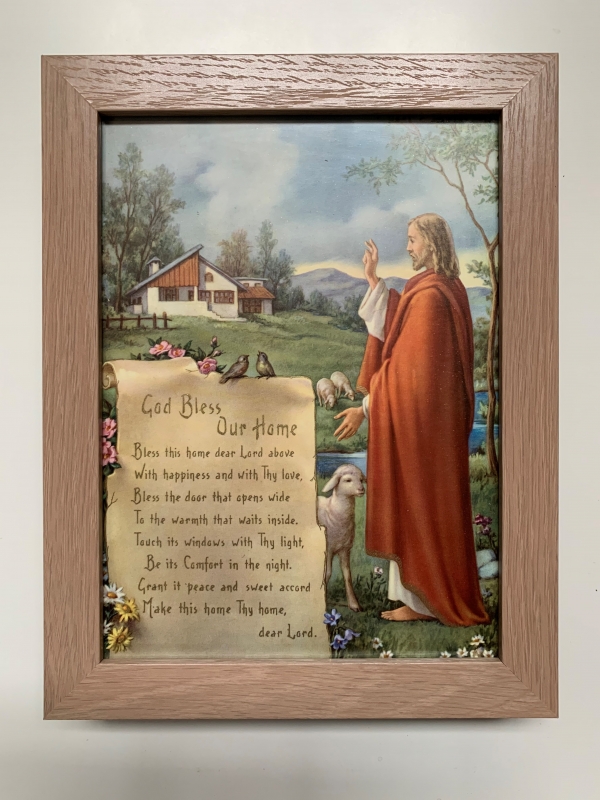 God Bless
Our Home
Bless this home dear Lord above
With happiness and with Thy love,
Bless the door that opens wide
To the warmth that waits inside.
Touch its windows with Thy light,
Be its Comfort in the night.
Grant it peace and sweet accord
Make this home Thy home,
dear Lord.